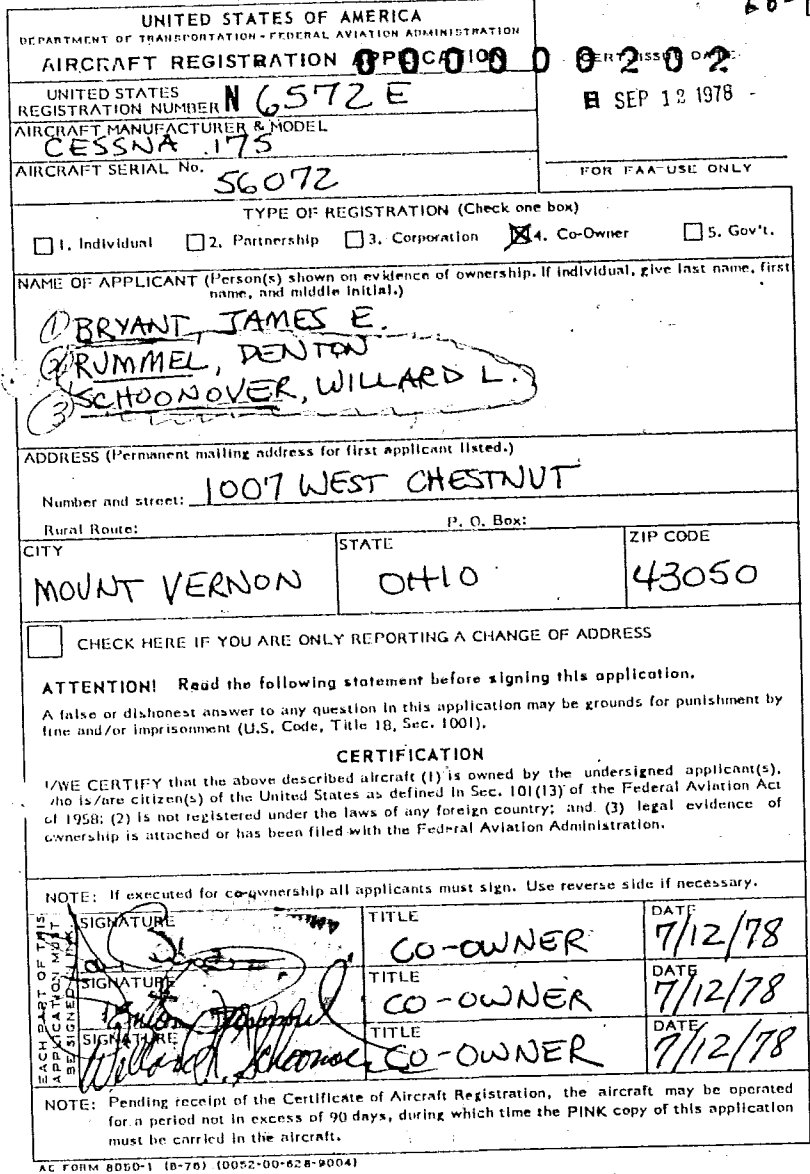 UNITED STATES OF AMERICA
DEPARTMENT OF TRANSPORTATION - FEDERAL AVIATION ADMINISTRATION
AIRCRAFT REGISTRATION APPLICATION
0 0 0 0 0 0 0 2 0 2
CERT. ISSUE DATE
UNITED STATES
REGISTRATION NUMBER N 6572E
SEP 12 1978
AIRCRAFT MANUFACTURER & MODEL
CESSNA 175
AIRCRAFT SERIAL No.
56072
FOR FAA USE ONLY
TYPE OF REGISTRATION (Check one box)
1. Individual 2. Partnership 3. Corporation 4. Co-Owner 5. Gov't.
NAME OF APPLICANT (Person(s) shown on evidence of ownership. If individual, give last name, first
name, and middle initial.)
① BRYANT, JAMES E.
② RUMMEL, DENTON
③ SCHOONOVER, WILLARD L.
ADDRESS (Permanent mailing address for first applicant listed.)
Number and street: 1007 WEST CHESTNUT
Rural Route: P. O. Box:
CITY STATE ZIP CODE
MOUNT VERNON OHIO 43050
CHECK HERE IF YOU ARE ONLY REPORTING A CHANGE OF ADDRESS
ATTENTION! Read the following statement before signing this application.
A false or dishonest answer to any question in this application may be grounds for punishment by
fine and/or imprisonment (U.S. Code, Title 18, Sec. 1001).
CERTIFICATION
I/WE CERTIFY that the above described aircraft (1) is owned by the undersigned applicant(s),
who is/are citizen(s) of the United States as defined in Sec. 101(13) of the Federal Aviation Act
of 1958; (2) is not registered under the laws of any foreign country; and (3) legal evidence of
ownership is attached or has been filed with the Federal Aviation Administration.
NOTE: If executed for co-ownership all applicants must sign. Use reverse side if necessary.
EACH PART OF THIS
APPLICATION MUST
BE SIGNED IN INK.
SIGNATURE TITLE DATE
CO-OWNER 7/12/78
SIGNATURE TITLE DATE
CO-OWNER 7/12/78
SIGNATURE TITLE DATE
Willard L. Schoonover CO-OWNER 7/12/78
NOTE: Pending receipt of the Certificate of Aircraft Registration, the aircraft may be operated
for a period not in excess of 90 days, during which time the PINK copy of this application
must be carried in the aircraft.
AC FORM 8050-1 (8-76) (0052-00-628-9004)